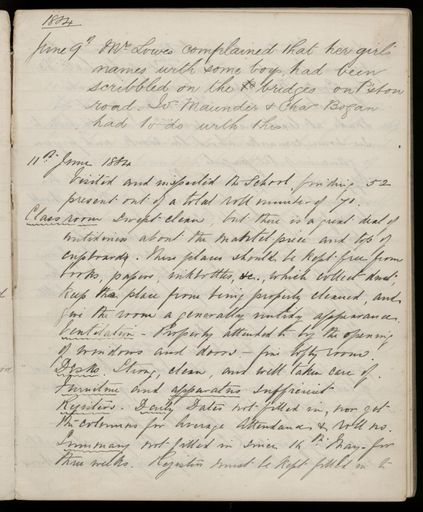 1884
June 9th Mrs Lowes complained that her girls
names with some boy had been
scribbled on the bridges on
road. Maunder & Chas Bogan
had to do with this
11th June 1884
Visited and inspected the School, finding 52
present out of a total roll number of 70.
Class room Swept clean, but there is a great deal of
untidiness about the mantel piece and top of
cupboards. These places should be kept free from
books, papers, inkbottles, &c., which collect dust
keep the place from being properly cleaned, and
give the room a generally untidy appearance.
Ventilation - Properly attended to by the opening
of windows and doors - fine lofty room.
Desks Strong, clean, and well taken care of.
Furniture and apparatus sufficient
Registers. Daily Dates not filled in, nor yet
the columns for Average attendance & roll no.
Summary not filled in since 16th May - for
three weeks. Registers must be kept filled in to